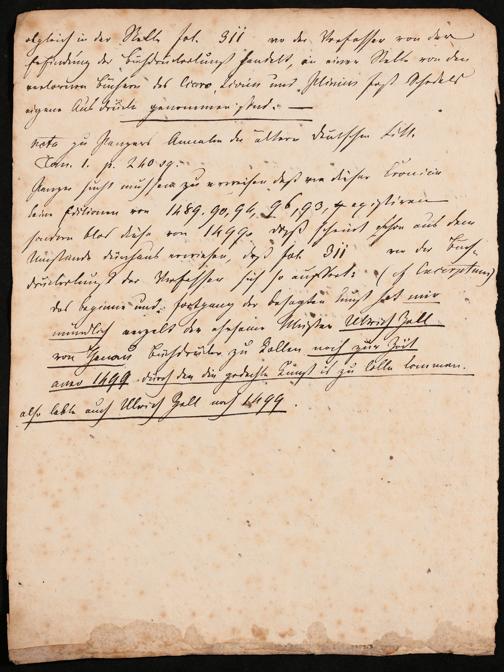 obgleich in der Stelle fol. 311 wo der Verfasser von der
Erfindung der Buchdruckerkunst handelt, an einer Stelle von den
verlornen Büchern des Cicero Livius und Plinius fast Schedels
eigene Ausdrücke genommen sind. —
Nota zu Panzers Annalen der ältern deutschen Litt.
Tom. 1. p. 240 sq.
Panzer sucht zu erweisen daß von dieser Cronica
keine Editionen von 1489. 90, 94, existiren
sondern blos diese von 1499. dieß scheint schon aus dem
Umstande durchaus erwiesen, daß fol. 311 wo der Buch-
druckerkunst der Verfasser sich so ausdrückt: (cf Excerptum)
das beginne und fortgang der vorsagten kunst hat mir
mündlich verzelt der ehrsame Meister Ulrich Zell
von Hanau buchdrucker zu Collen noch zur Zeit
anno 1499 durch den die gedachte kunst is zu Cölln kommen.
also lebte auch Ulrich Zell noch 1499.